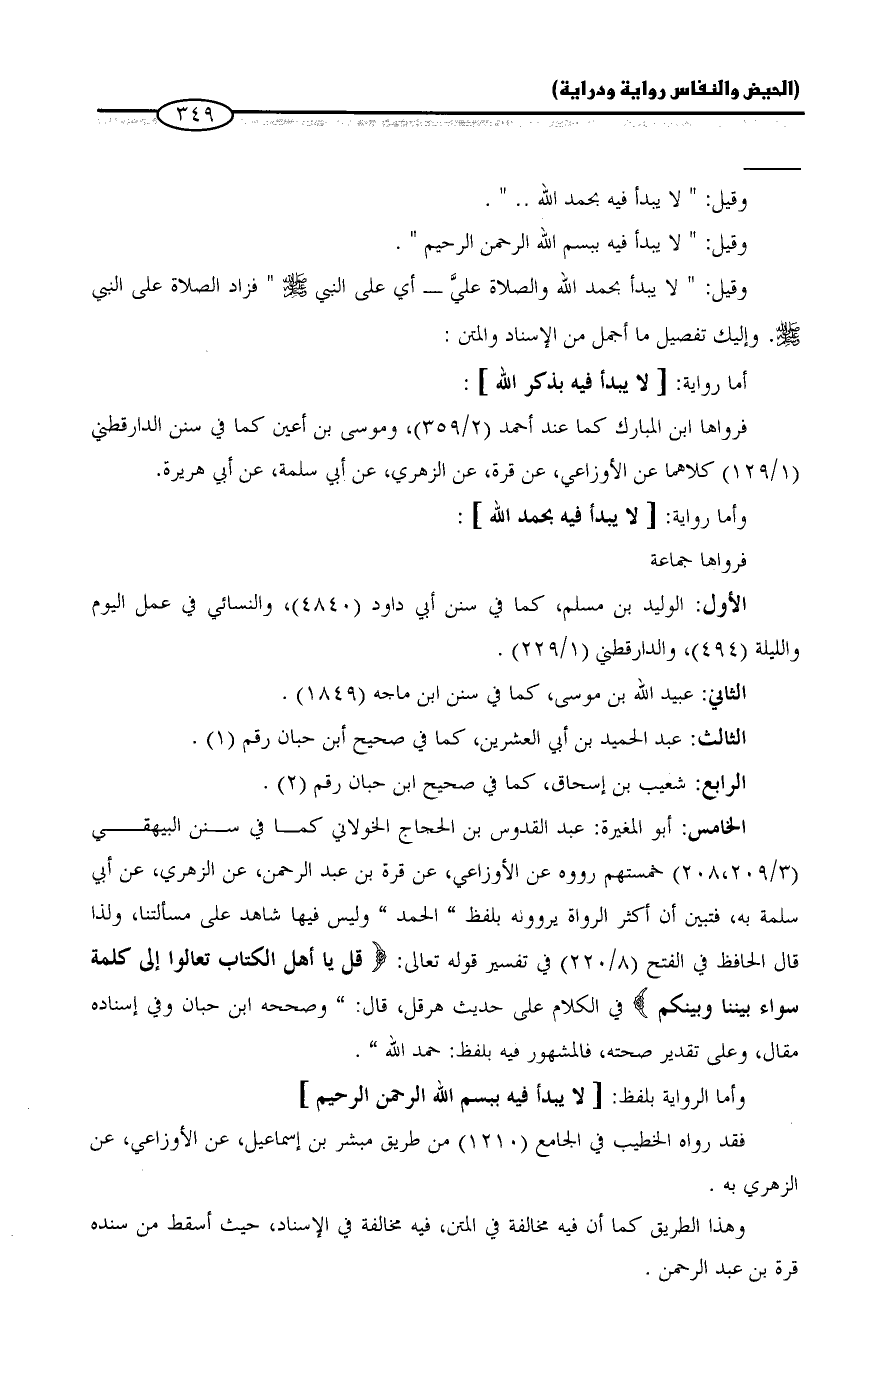 (الحيض والنفاس رواية ودراية)
٣٤٩
وقيل: " لا يبدأ فيه بحمد الله .. " .
وقيل: " لا يبدأ فيه ببسم الله الرحمن الرحيم " .
وقيل: " لا يبدأ بحمد الله والصلاة عليَّ ــ أي على النبي ﷺ " فزاد الصلاة على النبي
ﷺ. وإليك تفصيل ما أجمل من الإسناد والمتن :
أما رواية: [ لا يبدأ فيه بذكر الله ] :
فرواها ابن المبارك كما عند أحمد (٣٥٩/٢)، وموسى بن أعين كما في سنن الدارقطني
(١٢٩/١) كلاهما عن الأوزاعي، عن قرة، عن الزهري، عن أبي سلمة، عن أبي هريرة.
وأما رواية: [ لا يبدأ فيه بحمد الله ] :
فرواها جماعة
الأول: الوليد بن مسلم، كما في سنن أبي داود (٤٨٤٠)، والنسائي في عمل اليوم
والليلة (٤٩٤)، والدارقطني (٢٢٩/١) .
الثاني: عبيد الله بن موسى، كما في سنن ابن ماجه (١٨٤٩) .
الثالث: عبد الحميد بن أبي العشرين، كما في صحيح أبن حبان رقم (١) .
الرابع: شعيب بن إسحاق، كما في صحيح ابن حبان رقم (٢) .
الخامس: أبو المغيرة: عبد القدوس بن الحجاج الخولاني كمـــا في ســـنن البيهقـــــي
(٢٠٨،٢٠٩/٣) خمستهم رووه عن الأوزاعي، عن قرة بن عبد الرحمن، عن الزهري، عن أبي
سلمة به، فتبين أن أكثر الرواة يروونه بلفظ “ الحمد ” وليس فيها شاهد على مسألتنا، ولذا
قال الحافظ في الفتح (٢٢٠/٨) في تفسير قوله تعالى: ﴿ قل يا أهل الكتاب تعالوا إلى كلمة
سواء بيننا وبينكم ﴾ في الكلام على حديث هرقل، قال: “ وصححه ابن حبان وفي إسناده
مقال، وعلى تقدير صحته، فالمشهور فيه بلفظ: حمد الله “ .
وأما الرواية بلفظ: [ لا يبدأ فيه ببسم الله الرحمن الرحيم ]
فقد رواه الخطيب في الجامع (١٢١٠) من طريق مبشر بن إسماعيل، عن الأوزاعي، عن
الزهري به .
وهذا الطريق كما أن فيه مخالفة في المتن، فيه مخالفة في الإسناد، حيث أسقط من سنده
قرة بن عبد الرحمن .